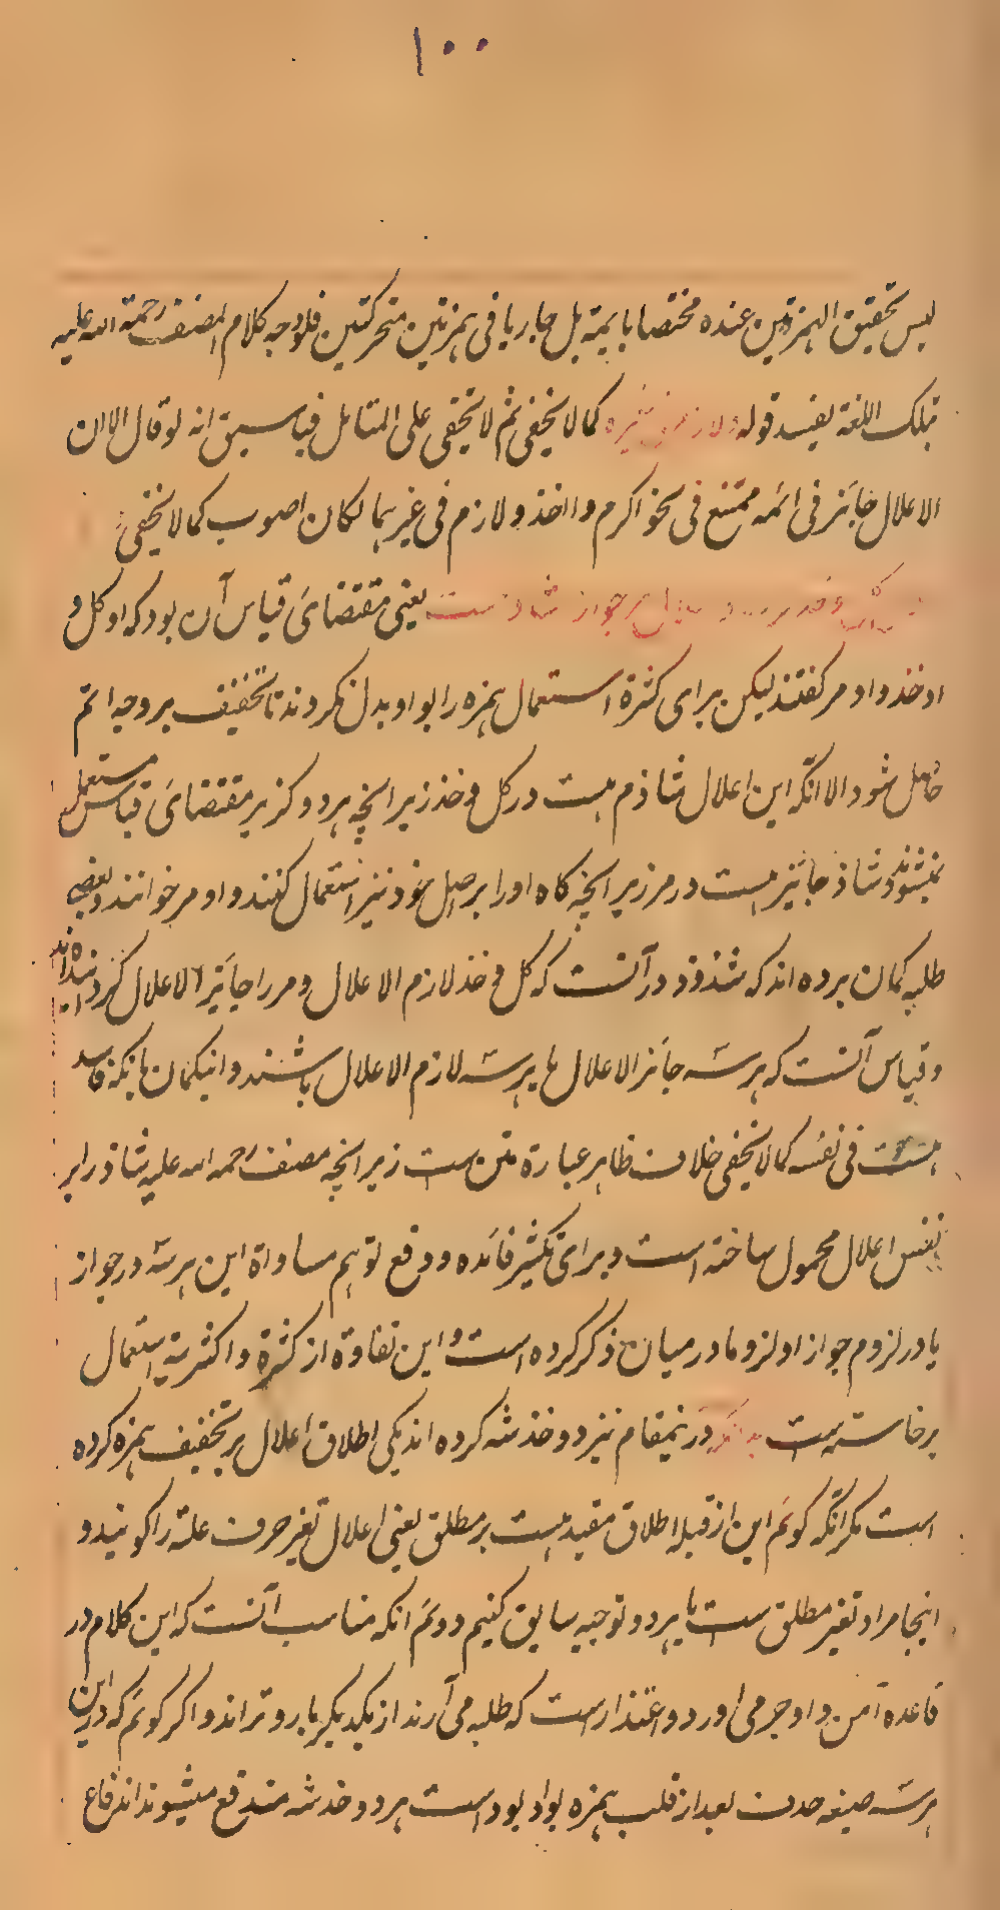 ۱۰۰
لیس تحقیق الهمزتین عنده مختصا بایمة بل جاریا فی همزتین متحرکتین فلا وجه کلام المصنف رحمة الله علیه
بتلک اللغة یفسد قوله ولازم فی غیره کما لا یخفی ثم لا یخفی علی المتامل فیما سبق انه لو قال الا ان
الاعلال جائز فی ائمه ممتنع فی نحو اکرم و ااخذ و لازم فی غیرهما لکان اصوب کما لا یخفی
جواز شاذ ست یعنی مقتضای قیاس آن بود که اوکل و
اوخذ و اومر گفتند لیکن برای کثرة استعمال همزه را بواو بدل نکردند تا تخفیف بر وجه اتم
حاصل شود الا انکه این اعلال شاذم هست در کل و خذ زیرانچه هر دو گز بر مقتضای قیاس مستعمل
نمیشوند و شاذ جائیز هست در مر زیرانچه گاه او را بر اصل خود نیز استعمال کنند و اومر خوانند و بعضی
طلبه گمان برده اند که شذوذ در آنست که کل و خذ لازم الاعلال و مر را جائز الاعلال گردانیده اند
و قیاس آنست که هر سه جائز الاعلال یا هر سه لازم الاعلال باشند و اینگمان با انکه فاسد
هست فی نفسه کما لا یخفی خلاف ظاهر عبارة متن ست زیرانچه مصنف رحمه الله علیه شاذ را بر
نفس اعلال محمول ساخته است و برای تکثیر فائده و دفع توهم مساواة این هر سه در جواز
یا در لزوم جوازا و لزوما در میان ذکر کرده است و این تفاوة از کثرة و اکثریة استعمال
برخاسته ست بدانکه درینمقام نیز دو خذشه کرده اند یکی اطلاق اعلال بر تخفیف همزه کرده
است مگر انکه گویم این از قبیله اطلاق مقید هست بر مطلق یعنی اعلال تغیر حرف علة را گویند و
اینجا مراد تغیر مطلق ست یا هر دو توجیه سابق کنیم دویم انکه مناسب آنست که این کلام در
قاعده آمن و اوجر می آورد و اعتذار است که طلبه می آرند از یکدیگر بارو تر اند و اگر گویم که در این
هر سه صیغه حذف بعد از قلب همزه بواو بود است هر دو خدشه مندفع میشوند اندفاع